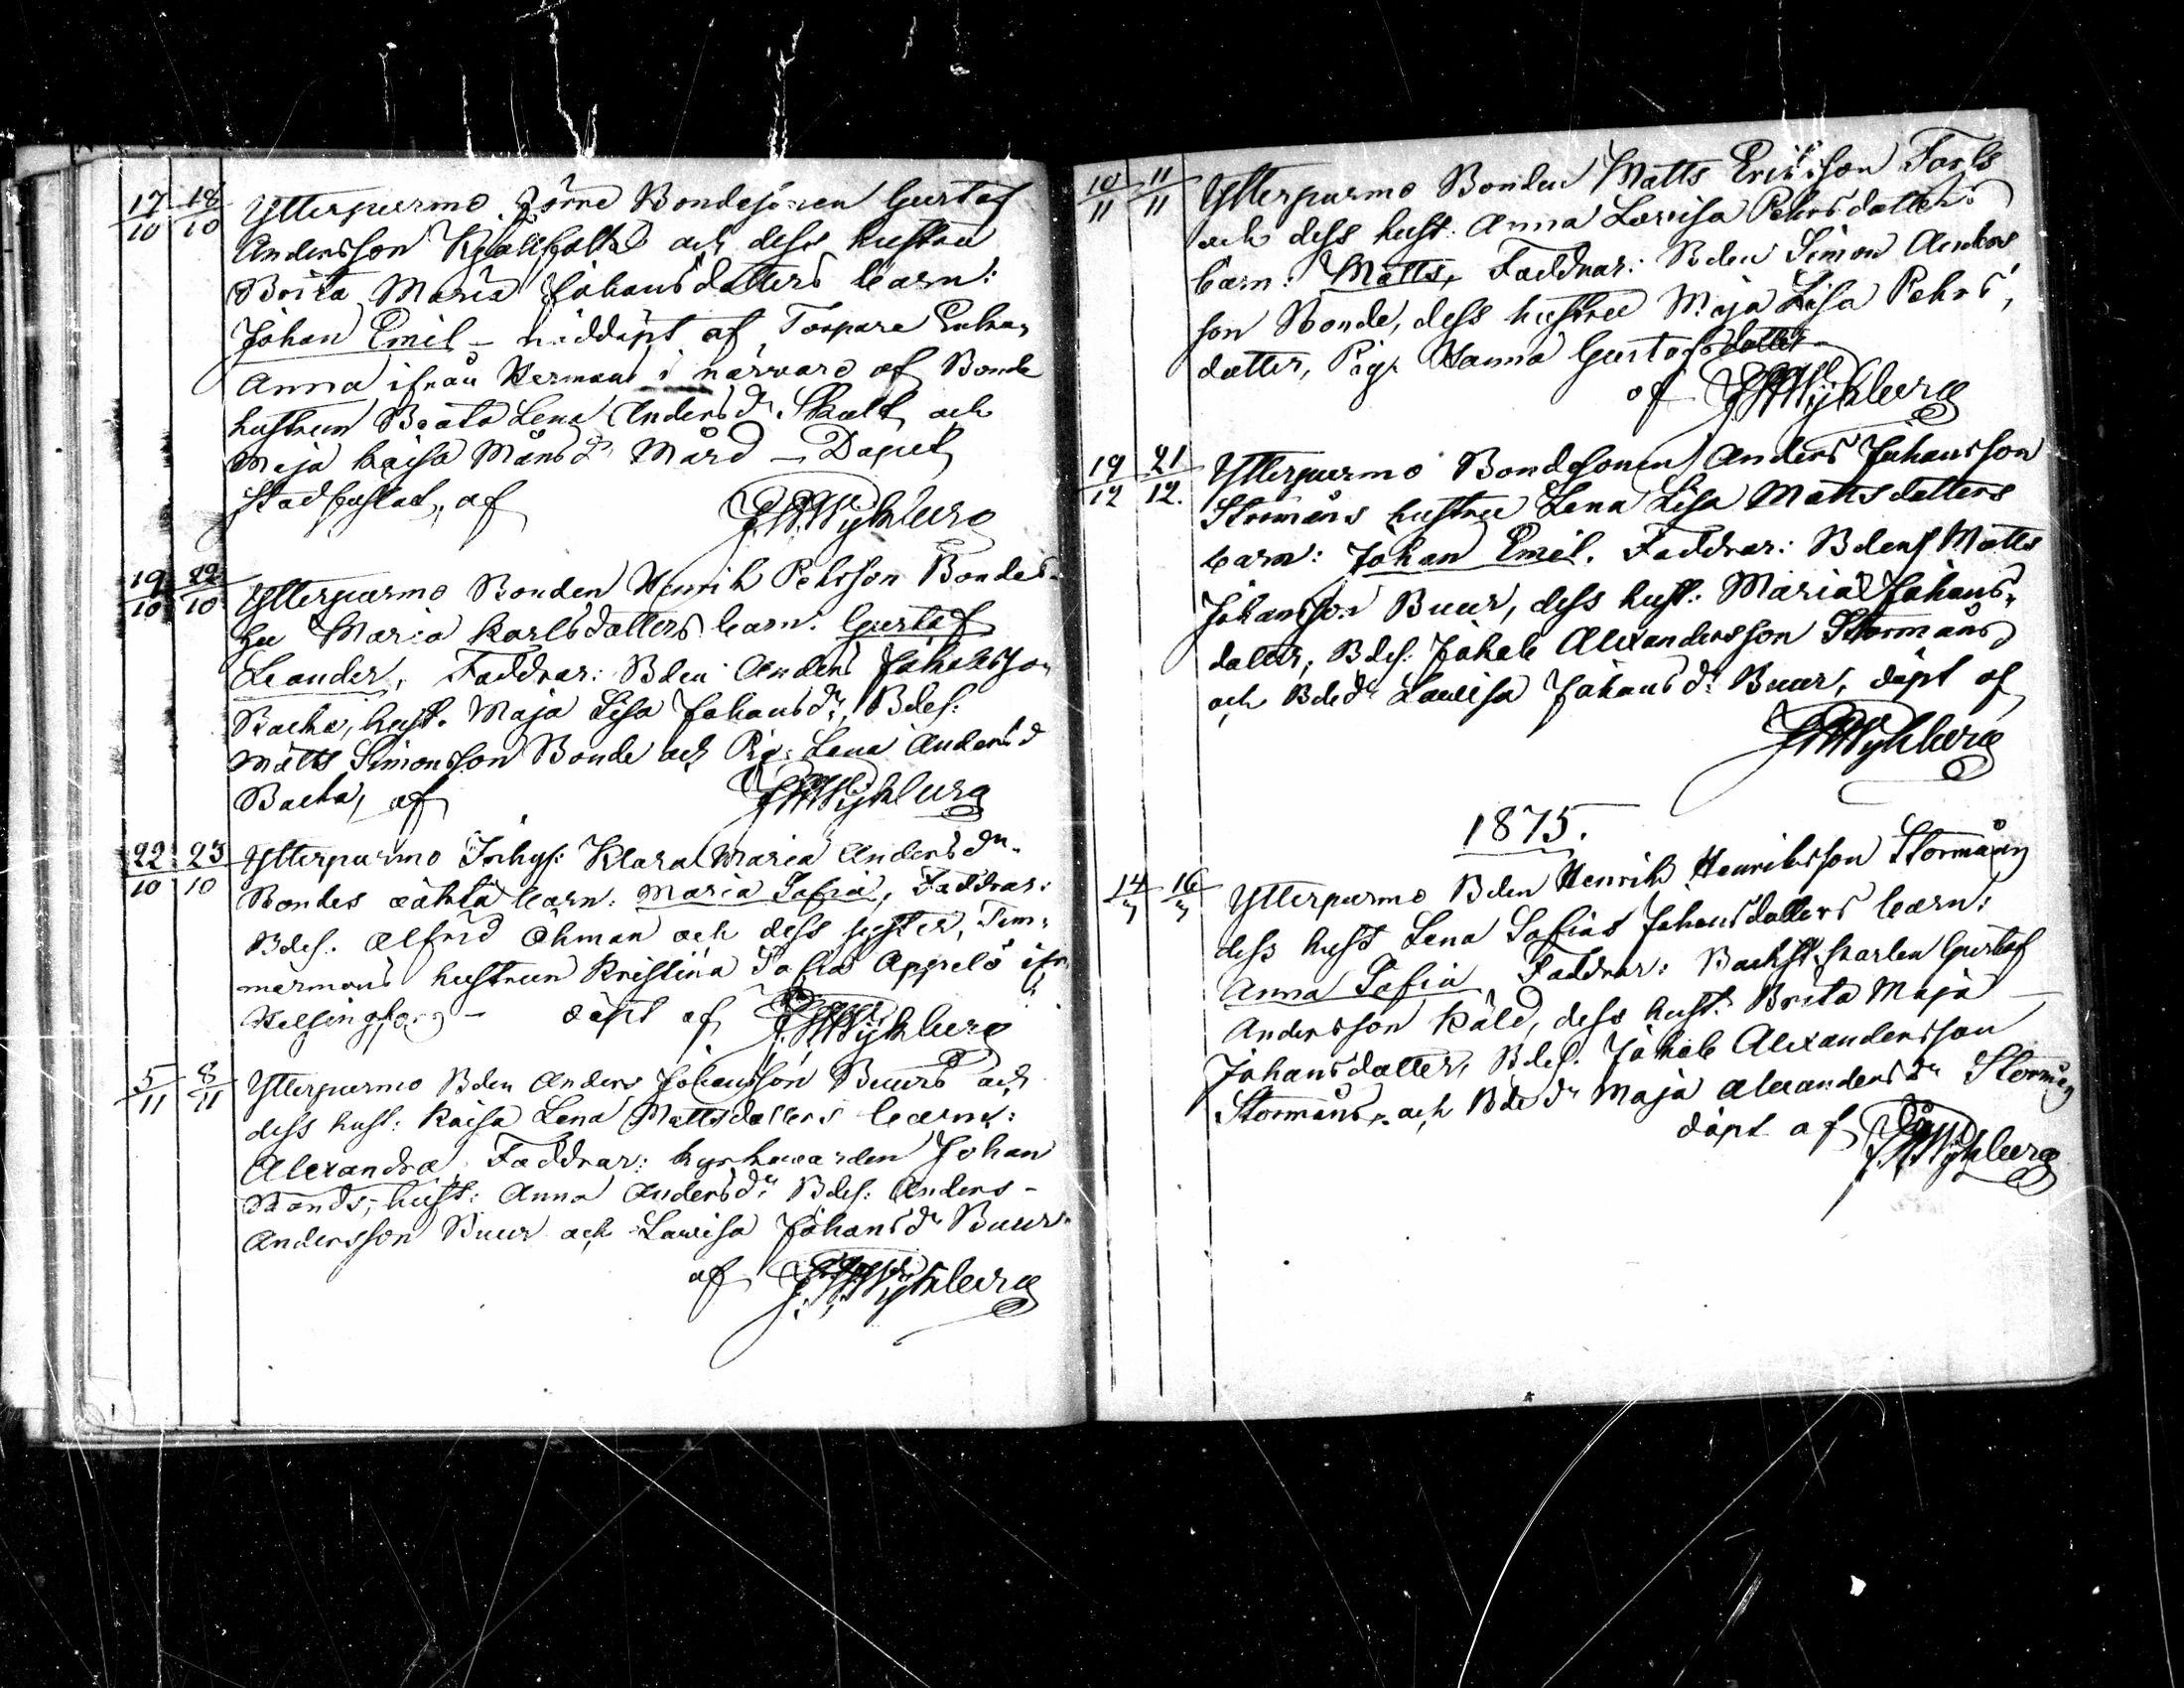 17/10 18/10 Ytterpurmo Bondesonen Gustaf
Andersson och dess hustru
Brita Maria Johansdotters barn:
Johan Emil – nöddöpt af Torpare Enkan
Anna ifrån Hermans i närvaro af Bonde
hustrun Beata Lena Andersdr Skult och
Maja Kaisa Månsdr Mård – Dopet
stadfästat af J.W. Nybberg
19/10 22/10 Ytterpurmo Bonden Henrik Pehrsson Bondes
Maria Karlsdotters barn: Gustaf
Leander, Faddrar: Bden Anders Johansson
Backa, hust. Maja Lisa Johansdr, Bdes:
Matts Simonsson Bonde och Pig: Lena Andersd
Backa, af
22/10 23/10 Ytterpurmo Inhys: Klara Maria Andersdr
Bondes oäkta barn: Maria Sofia, Faddrar:
Bdes. Alfrid Öhman och dess syster, Tim-
mermans hustrun Kristina Sofia Appelö ifr.
Helsingfors – döpt af
5/11 8/11 Ytterpurmo Bden Anders Johansson Buurs och
dess hust: Kaisa Lena Mattsdotters barn:
Alexandra, Faddrar: kyrkovärden Johan
hust: Anna Andersdr Bdes: Anders
Andersson Buur och Lovisa Johansdr Buur.
af
10/11 11/11 Ytterpurmo Bonden Matts Eriksson Forss
och dess hust: Anna Lovisa Pehrsdotters
barn: Matts, Faddrar: Bden Simon Anders
son Bonde, dess hustru Maja Lisa Pehrs,
dotter, Pig: Hanna Gustafsdotter
af
19/12 21/12. Ytterpurmo Bondesonen Anders Johansson
Stormåns hustru Lena Lisa Mattsdotters
barn: Johan Emil. Faddrar: Bdens Matts
Johansson Buur, dess hust: Maria Johans,
dotter, Bdes: Jakob Alexandersson Stormåns
och Bdedr Lovisa Johansdr Buur, döpt af
1875.
14 16 Ytterpurmo Bden Henrik Henriksson Stormåns
dess hust Lena Sofias Johansdotters barn:
Anna Sofia Faddrar: Backst karlen Gustaf
Andersson Käld, dess hust: Brita Maja –
Johansdotter, Bdes: Jakob Alexandersson
Stormåns och Bdedr Maja Alexandersdr Stormån
döpt af